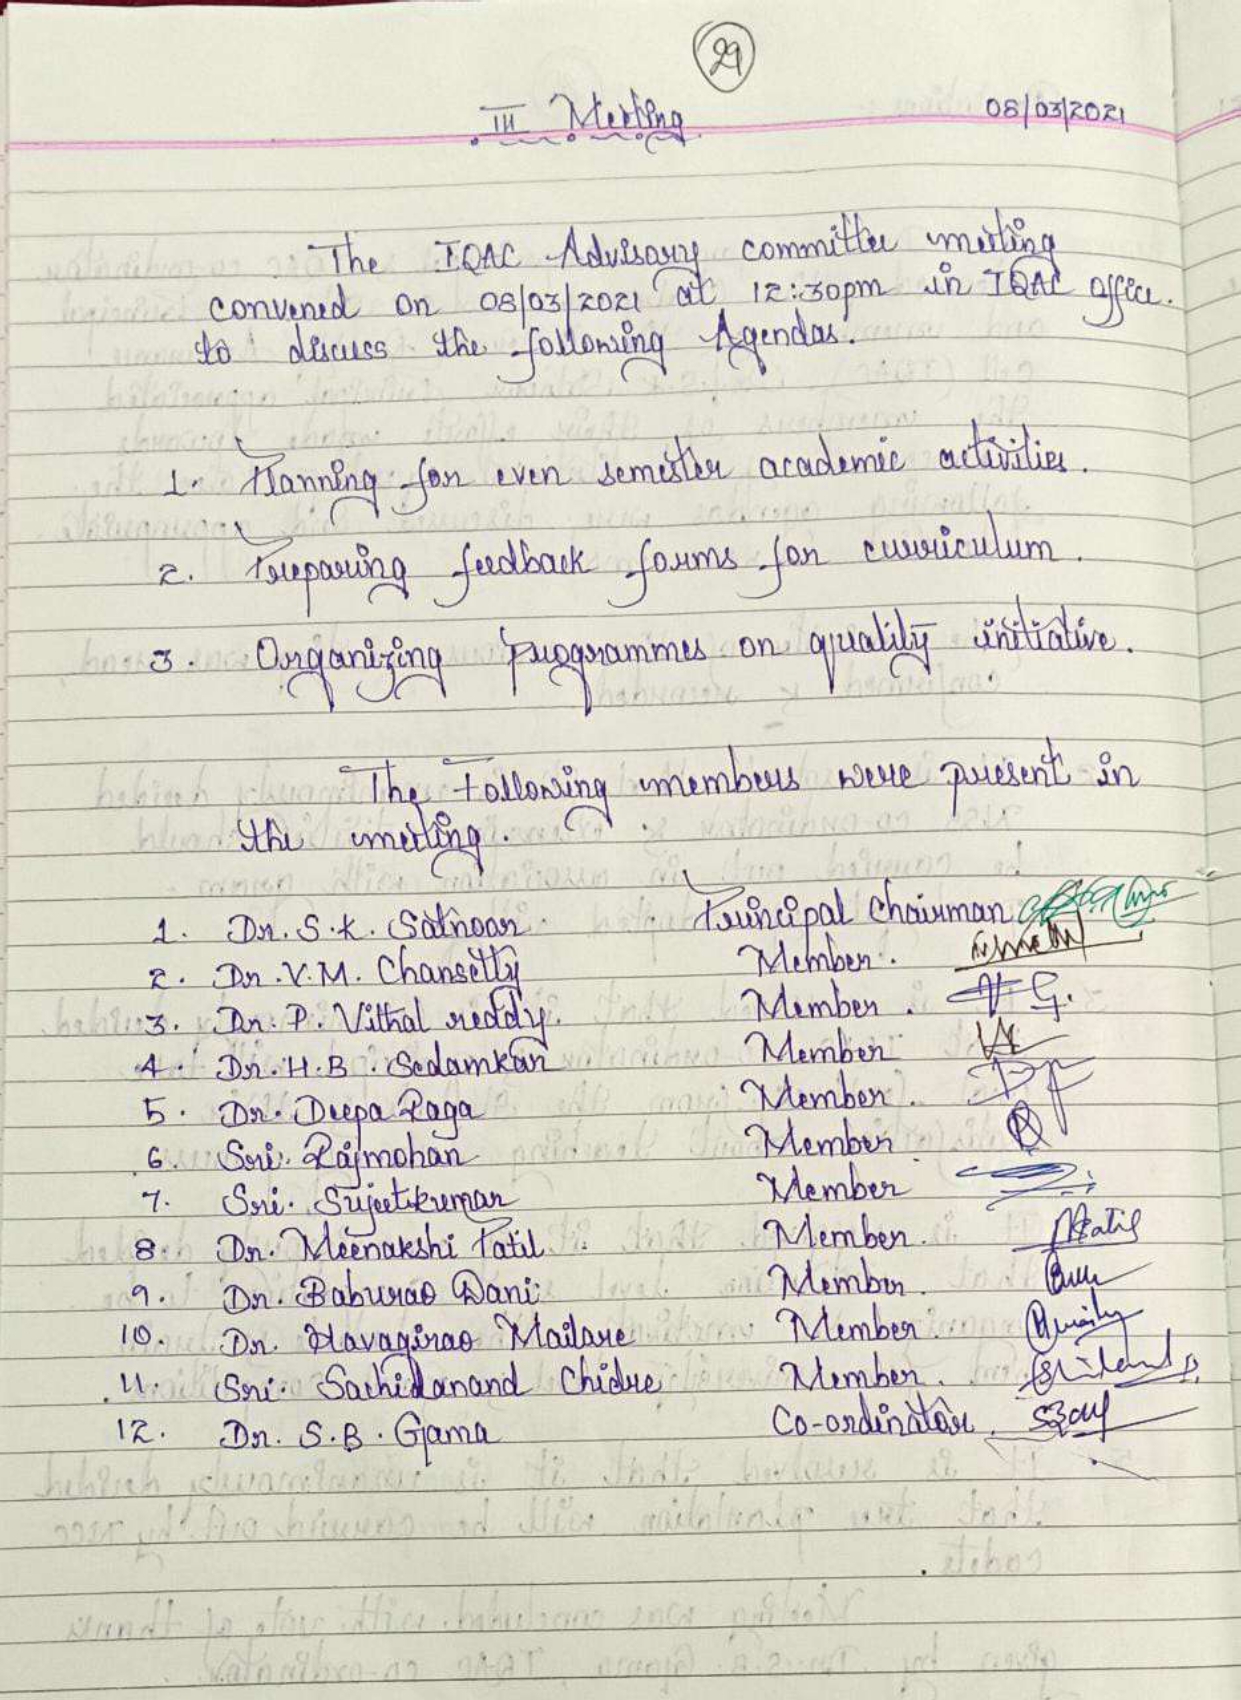 29
III Meeting
08/03/2021
The IQAC Advisory committee meeting
convened on 08/03/2021 at 12:30pm in IQAC office.
to discuss the following Agendas.
1. Planning for even semester academic activities.
2. Preparing feedback forms for curriculum.
3. Organizing programmes on quality initiative.
The Following members were present in
the meeting.
1. Dr. S.K. Satnoor Principal Chairman
2. Dr. V.M. Chansetty Member.
3. Dr. P. Vithal reddy. Member.
4. Dr. H.B. Sedamkar Member
5. Dr. Deepa Raga Member.
6. Sri. Rajmohan Member
7. Sri. Sujeetkumar Member
8 Dr. Meenakshi Patil. Member.
9. Dr. Baburao Dani Member.
10. Dr. Havagirao Mailare Member
11. Sri. Sachidanand Chidre Member.
12. Dr. S.B. Gama Co-ordinator.